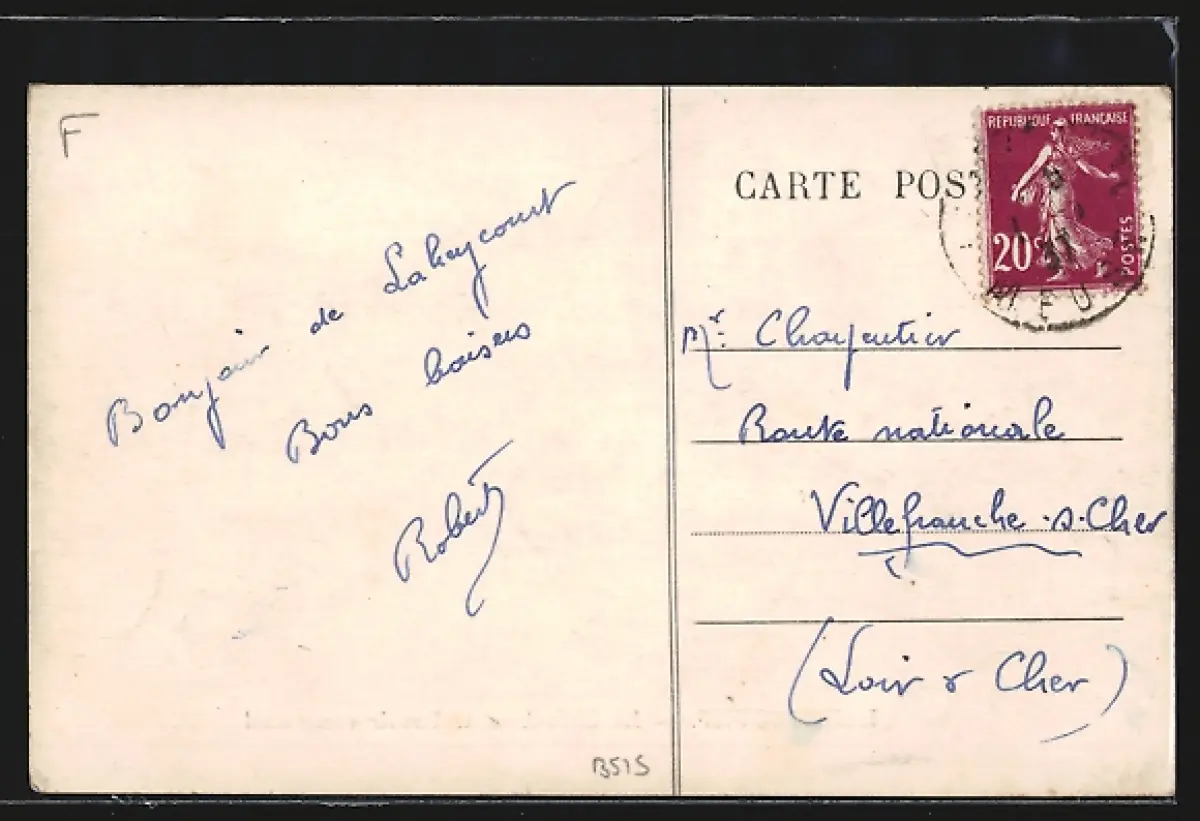 F
Bonjour de Laheycourt
Bons baisers
Robert
B515
CARTE POST
REPUBLIQUE FRANÇAISE
20c
POSTES
MEUSE
Mr. Charpentier
Route nationale
Villefranche-s-Cher
(Loir & Cher)